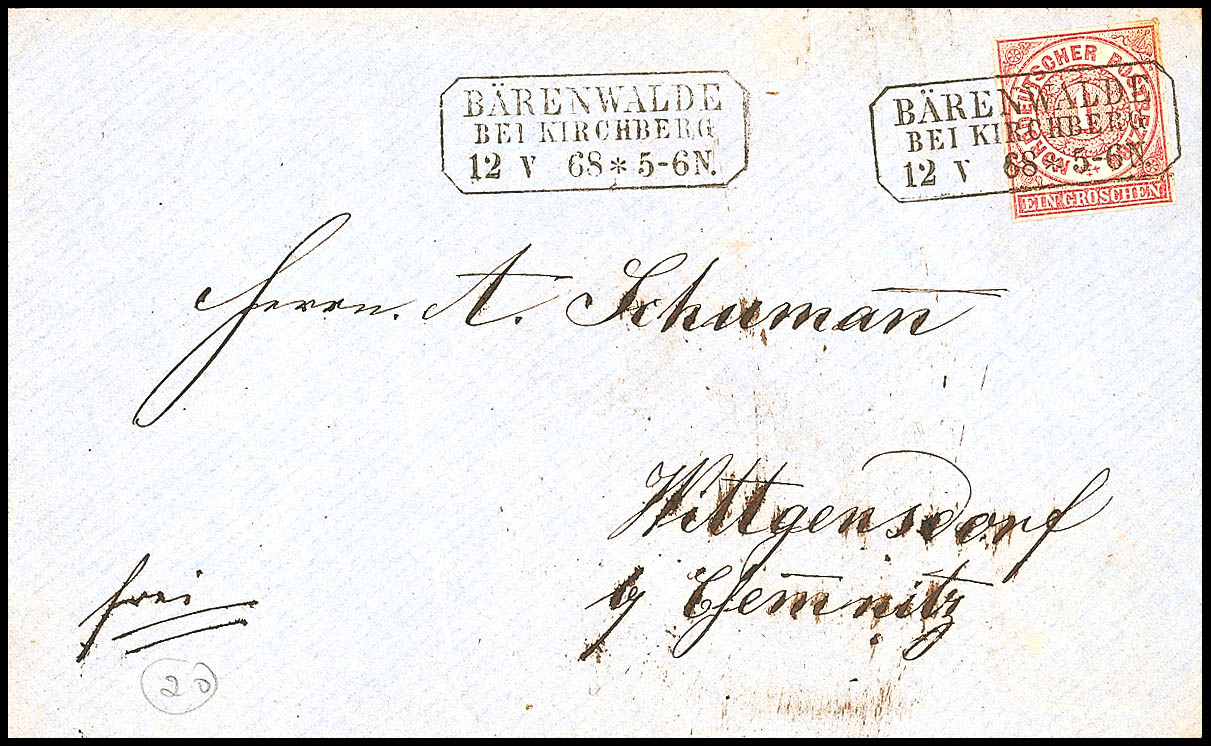 BÄRENWALDE
BEI KIRCHBERG
12 V 68 * 5-6N.
NORDDEUTSCHER POSTBEZIRK
1
EIN GROSCHEN
BÄRENWALDE
BEI KIRCHBERG
12 V 68 * 5-6N.
Herrn. A. Schuman̅
Wittgensdorf
b/ Chem̅nitz
frei
20